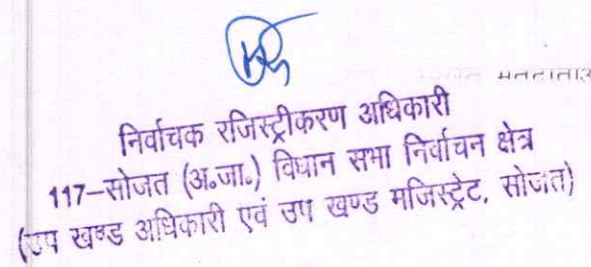 निर्वाचक रजिस्ट्रीकरण अधिकारी
117–सोजत (अ॰जा॰) विधान सभा निर्वाचन क्षेत्र
(उप खण्ड अधिकारी एवं उप खण्ड मजिस्ट्रेट, सोजत)